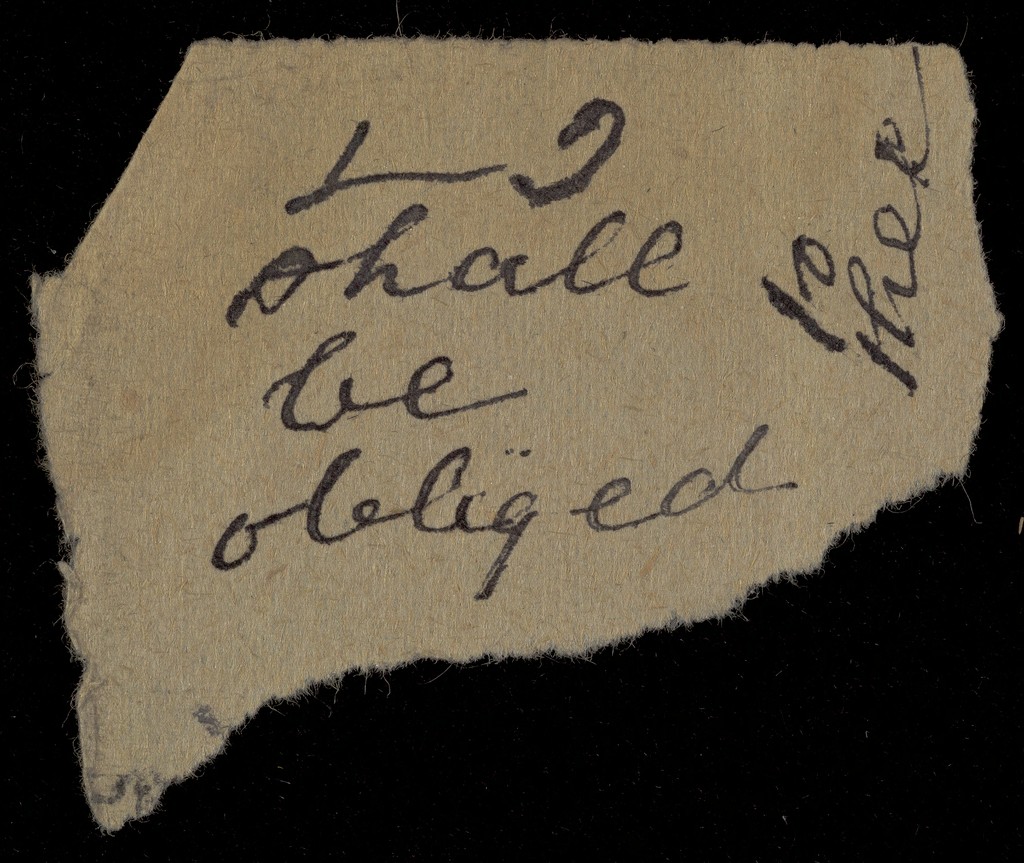 I
shall
be
obliged
to
thee